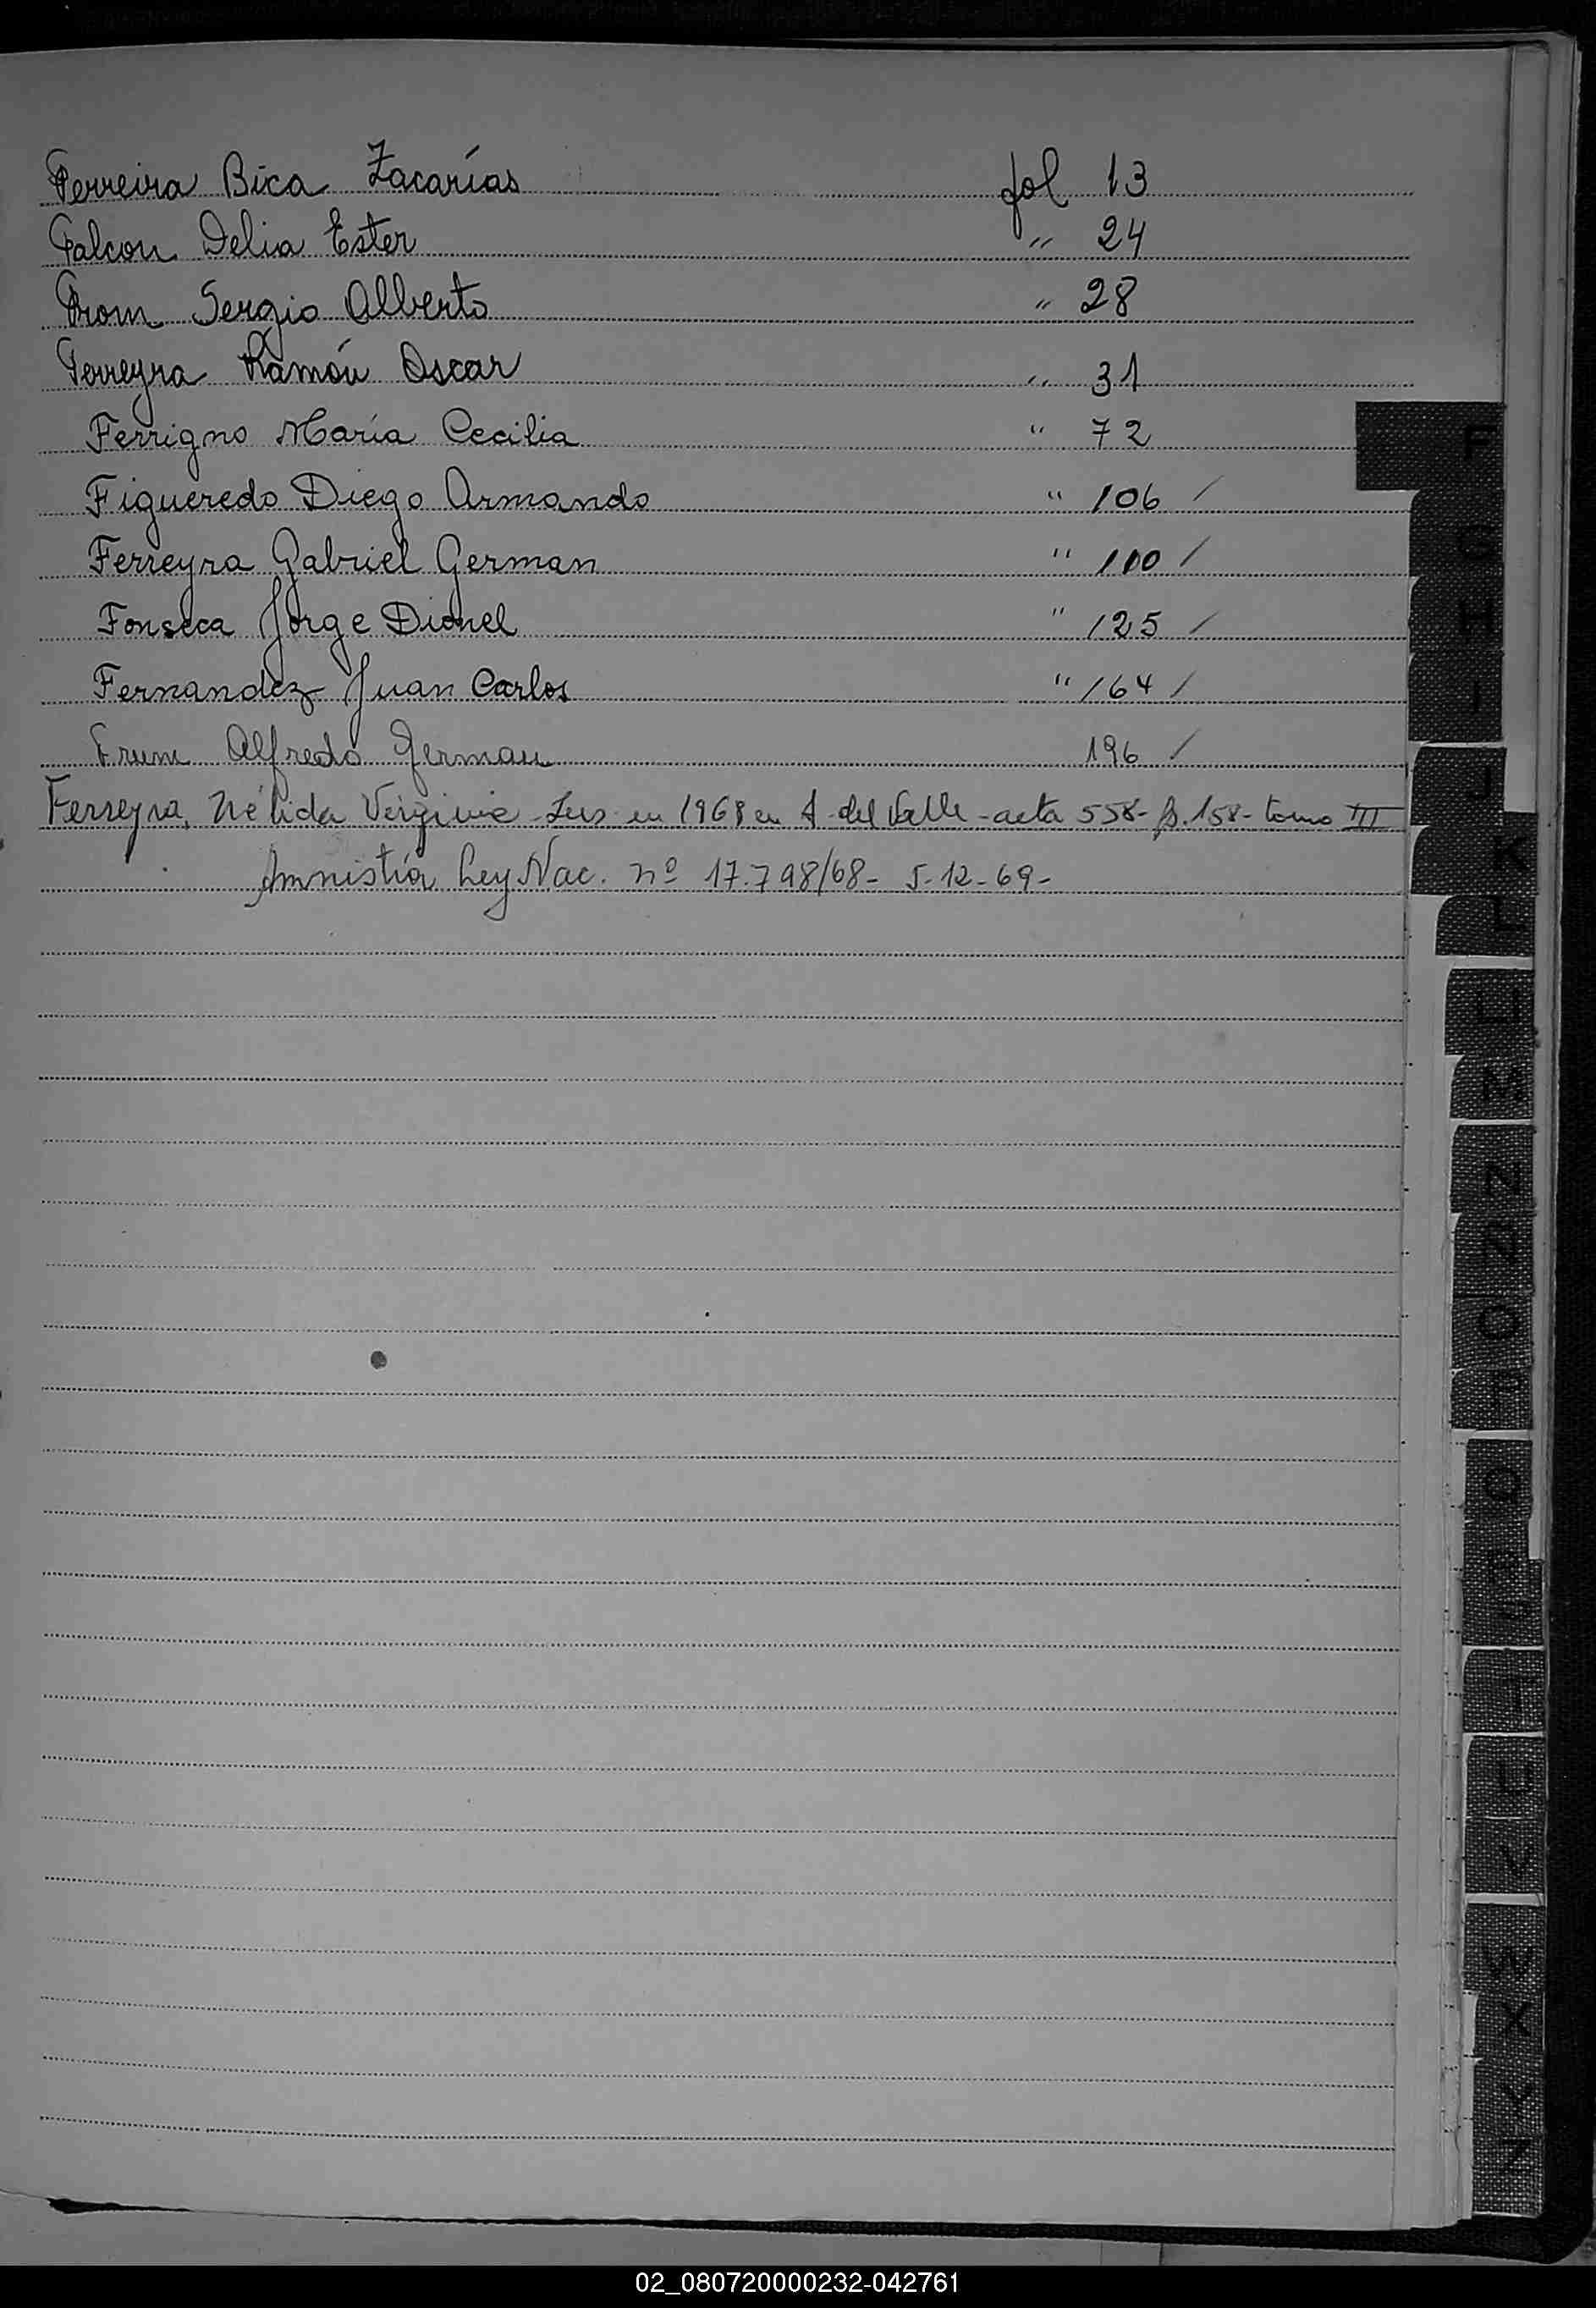 Ferreira Bica Zacarías fol 13
Falcon Delia Ester " 24
From Sergio Alberto " 28
Ferreyra Ramón Oscar " 31
Ferrigno María Cecilia " 72
Figueredo Diego Armando " 106 /
Ferreyra Gabriel German " 110 /
Fonseca Jorge Dionel " 125 /
Fernandez Juan Carlos " 164 /
Frum Alfredo German 196 /
Ferreyra, Nélida Virginia - Ins en 1968 en A. del Valle - acta 558 - f. 158 - tomo III
Amnistía Ley Nac. nº 17.798/68 - 5-12-69 -
F
G
H
I
J
K
L
Ll
M
N
Ñ
O
P
Q
R
S
T
U
V
W
X
Y
Z
02_080720000232-042761